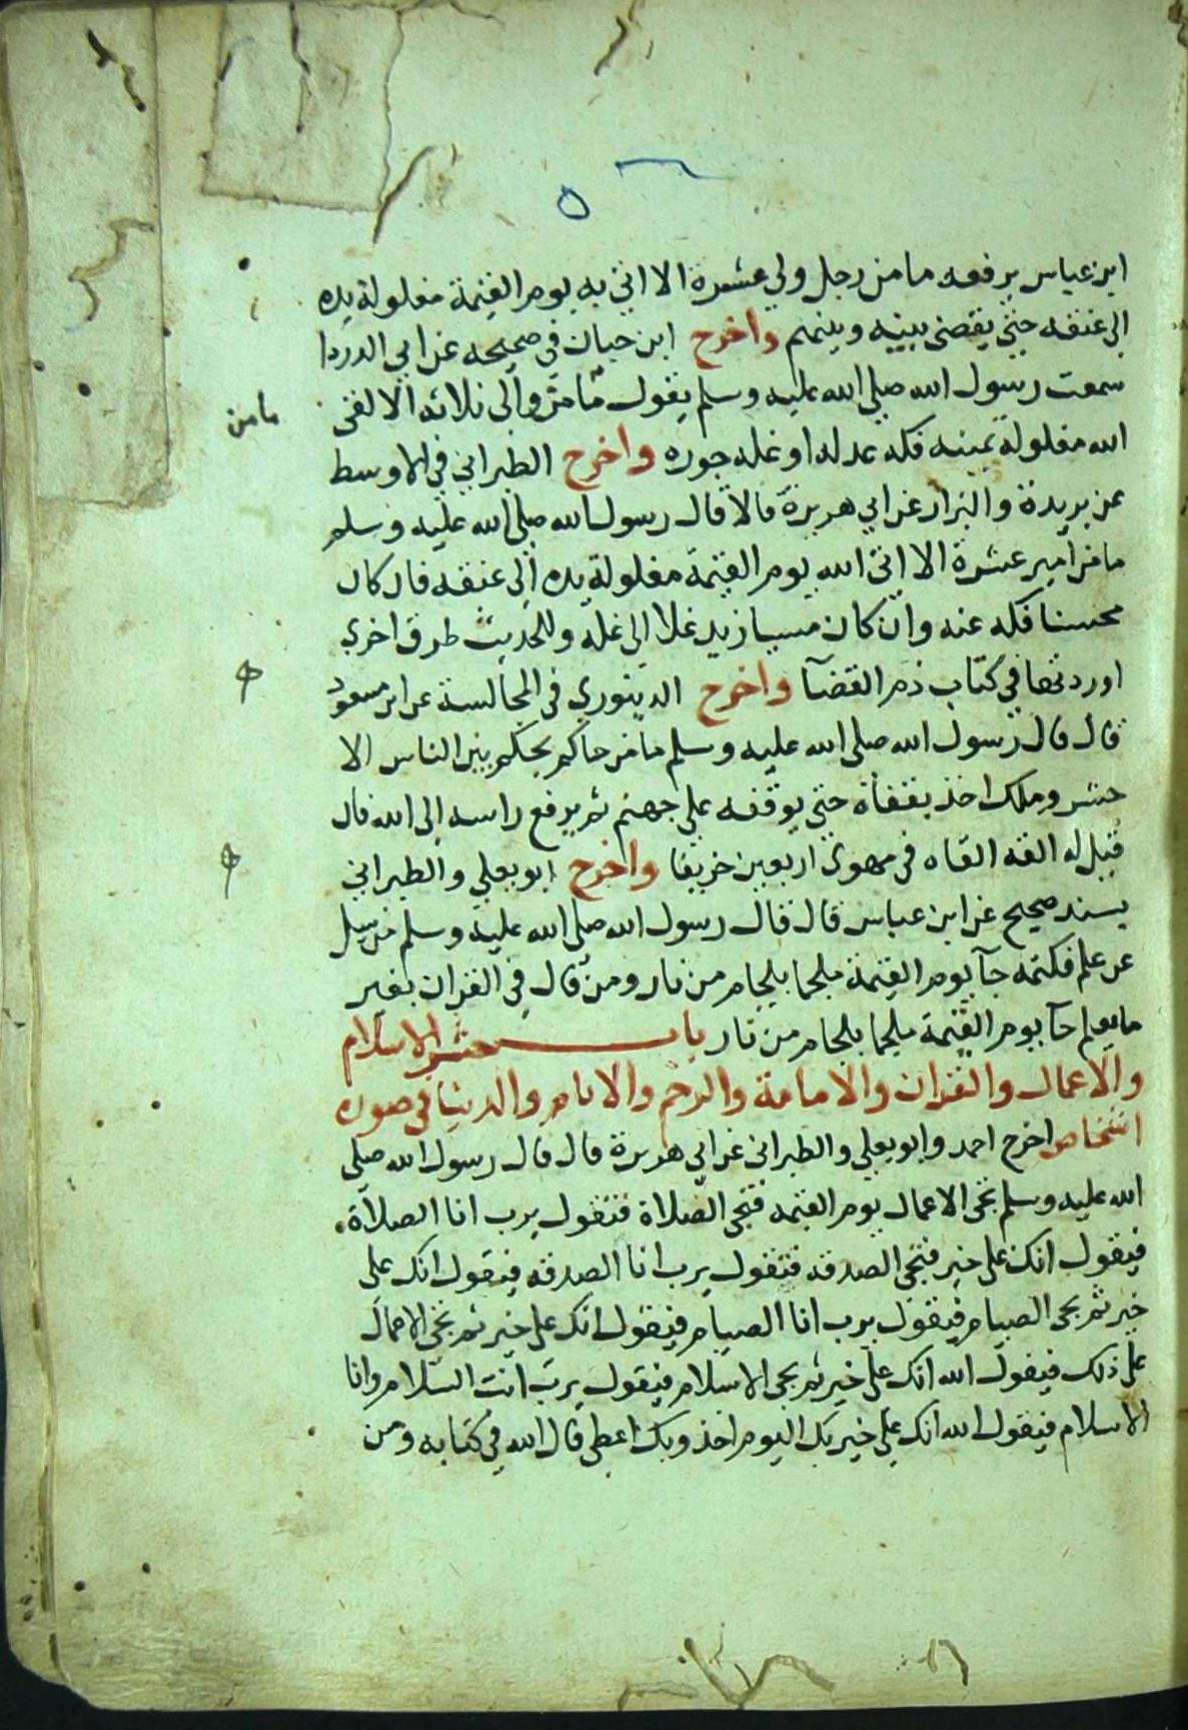 ابن عباس يرفعه ما من رجل ولي عشرة الا اتي به يوم القيمة مغلولة يده
الى عنقه حتى يقضى بينه وبينهم واخرج ابن حبان في صحيحه عن ابي الدرداء
سمعت رسول الله صلى الله عليه وسلم يقول ما من والي ثلاثة الا لقى
ما من
الله مغلولة يمينه فكه عدله او غله جوره واخرج الطبراني في الاوسط
عن بريدة والبزار عن ابي هريرة قالا قال رسول الله صلى الله عليه وسلم
ما من امير عشرة الا اتى الله يوم القيمة مغلولة يده الى عنقه فان كان
محسنا فكه عنه وان كان مسيا زيد غلا الى غله وللحديث طرق اخرى
اوردتها في كتاب ذم القضآ واخرج الدينوري في المجالسة عن ابن مسعود
قال قال رسول الله صلى الله عليه وسلم ما من حاكم يحكم بين الناس الا
حشر وملك اخذ بقفاه حتى يوقفه على جهنم ثم يرفع راسه الى الله فان
قيل له القه القاه في مهوى اربعين خريفا واخرج ابو يعلي والطبراني
بسند صحيح عن ابن عباس قال قال رسول الله صلى الله عليه وسلم من سيل
عن علم فكتمه جآ يوم القيمة ملجما بلجام من نار ومن قال في القران بغير
ما يعلم جآ يوم القيمة ملجما بلجام من نار باب حشر الاسلام
والاعمال والقران والامامة والرحم والايام والدنيا في صورة
اشخاص اخرج احمد وابو يعلي والطبراني عن ابي هريرة قال قال رسول الله صلى
الله عليه وسلم تجى الاعمال يوم القيمه فتجى الصلاة فتقول يرب انا الصلاة
فيقول انك على خير فتجى الصدقه فتقول يرب انا الصدقه فيقول انك على
خير ثم يجى الصيام فيقول يرب انا الصيام فيقول انك على خير ثم تجى الاعمال
على ذلك فيقول الله انك على خير ثم يجى الاسلام فيقول يرب انت السلام وانا
الاسلام فيقول الله انك على خير بك اليوم اخذ وبك اعطى قال الله في كتابه ومن